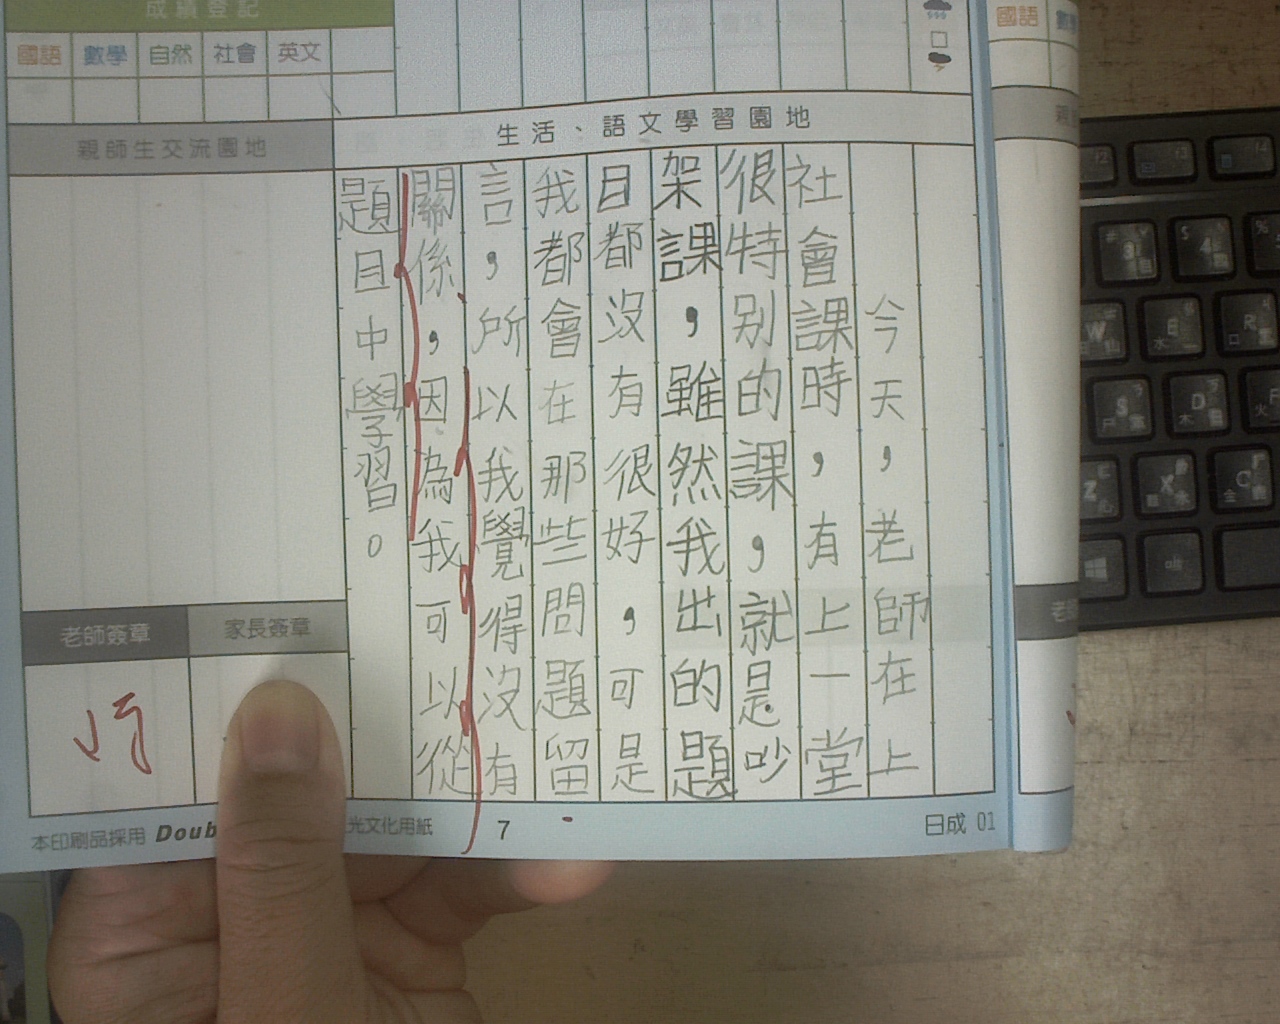 成績登記
國語 數學 自然 社會 英文
生活、語文學習園地
親師生交流園地
今天，老師在上
社會課時，有上一堂
很特別的課，就是吵
架課，雖然我出的題
目都沒有很好，可是
我都會在那些問題留
言，所以我覺得沒有
關係，因為我可以從
題目中學習。
老師簽章
家長簽章
本印刷品採用 Doub
光文化用紙
7
日成 01
國語